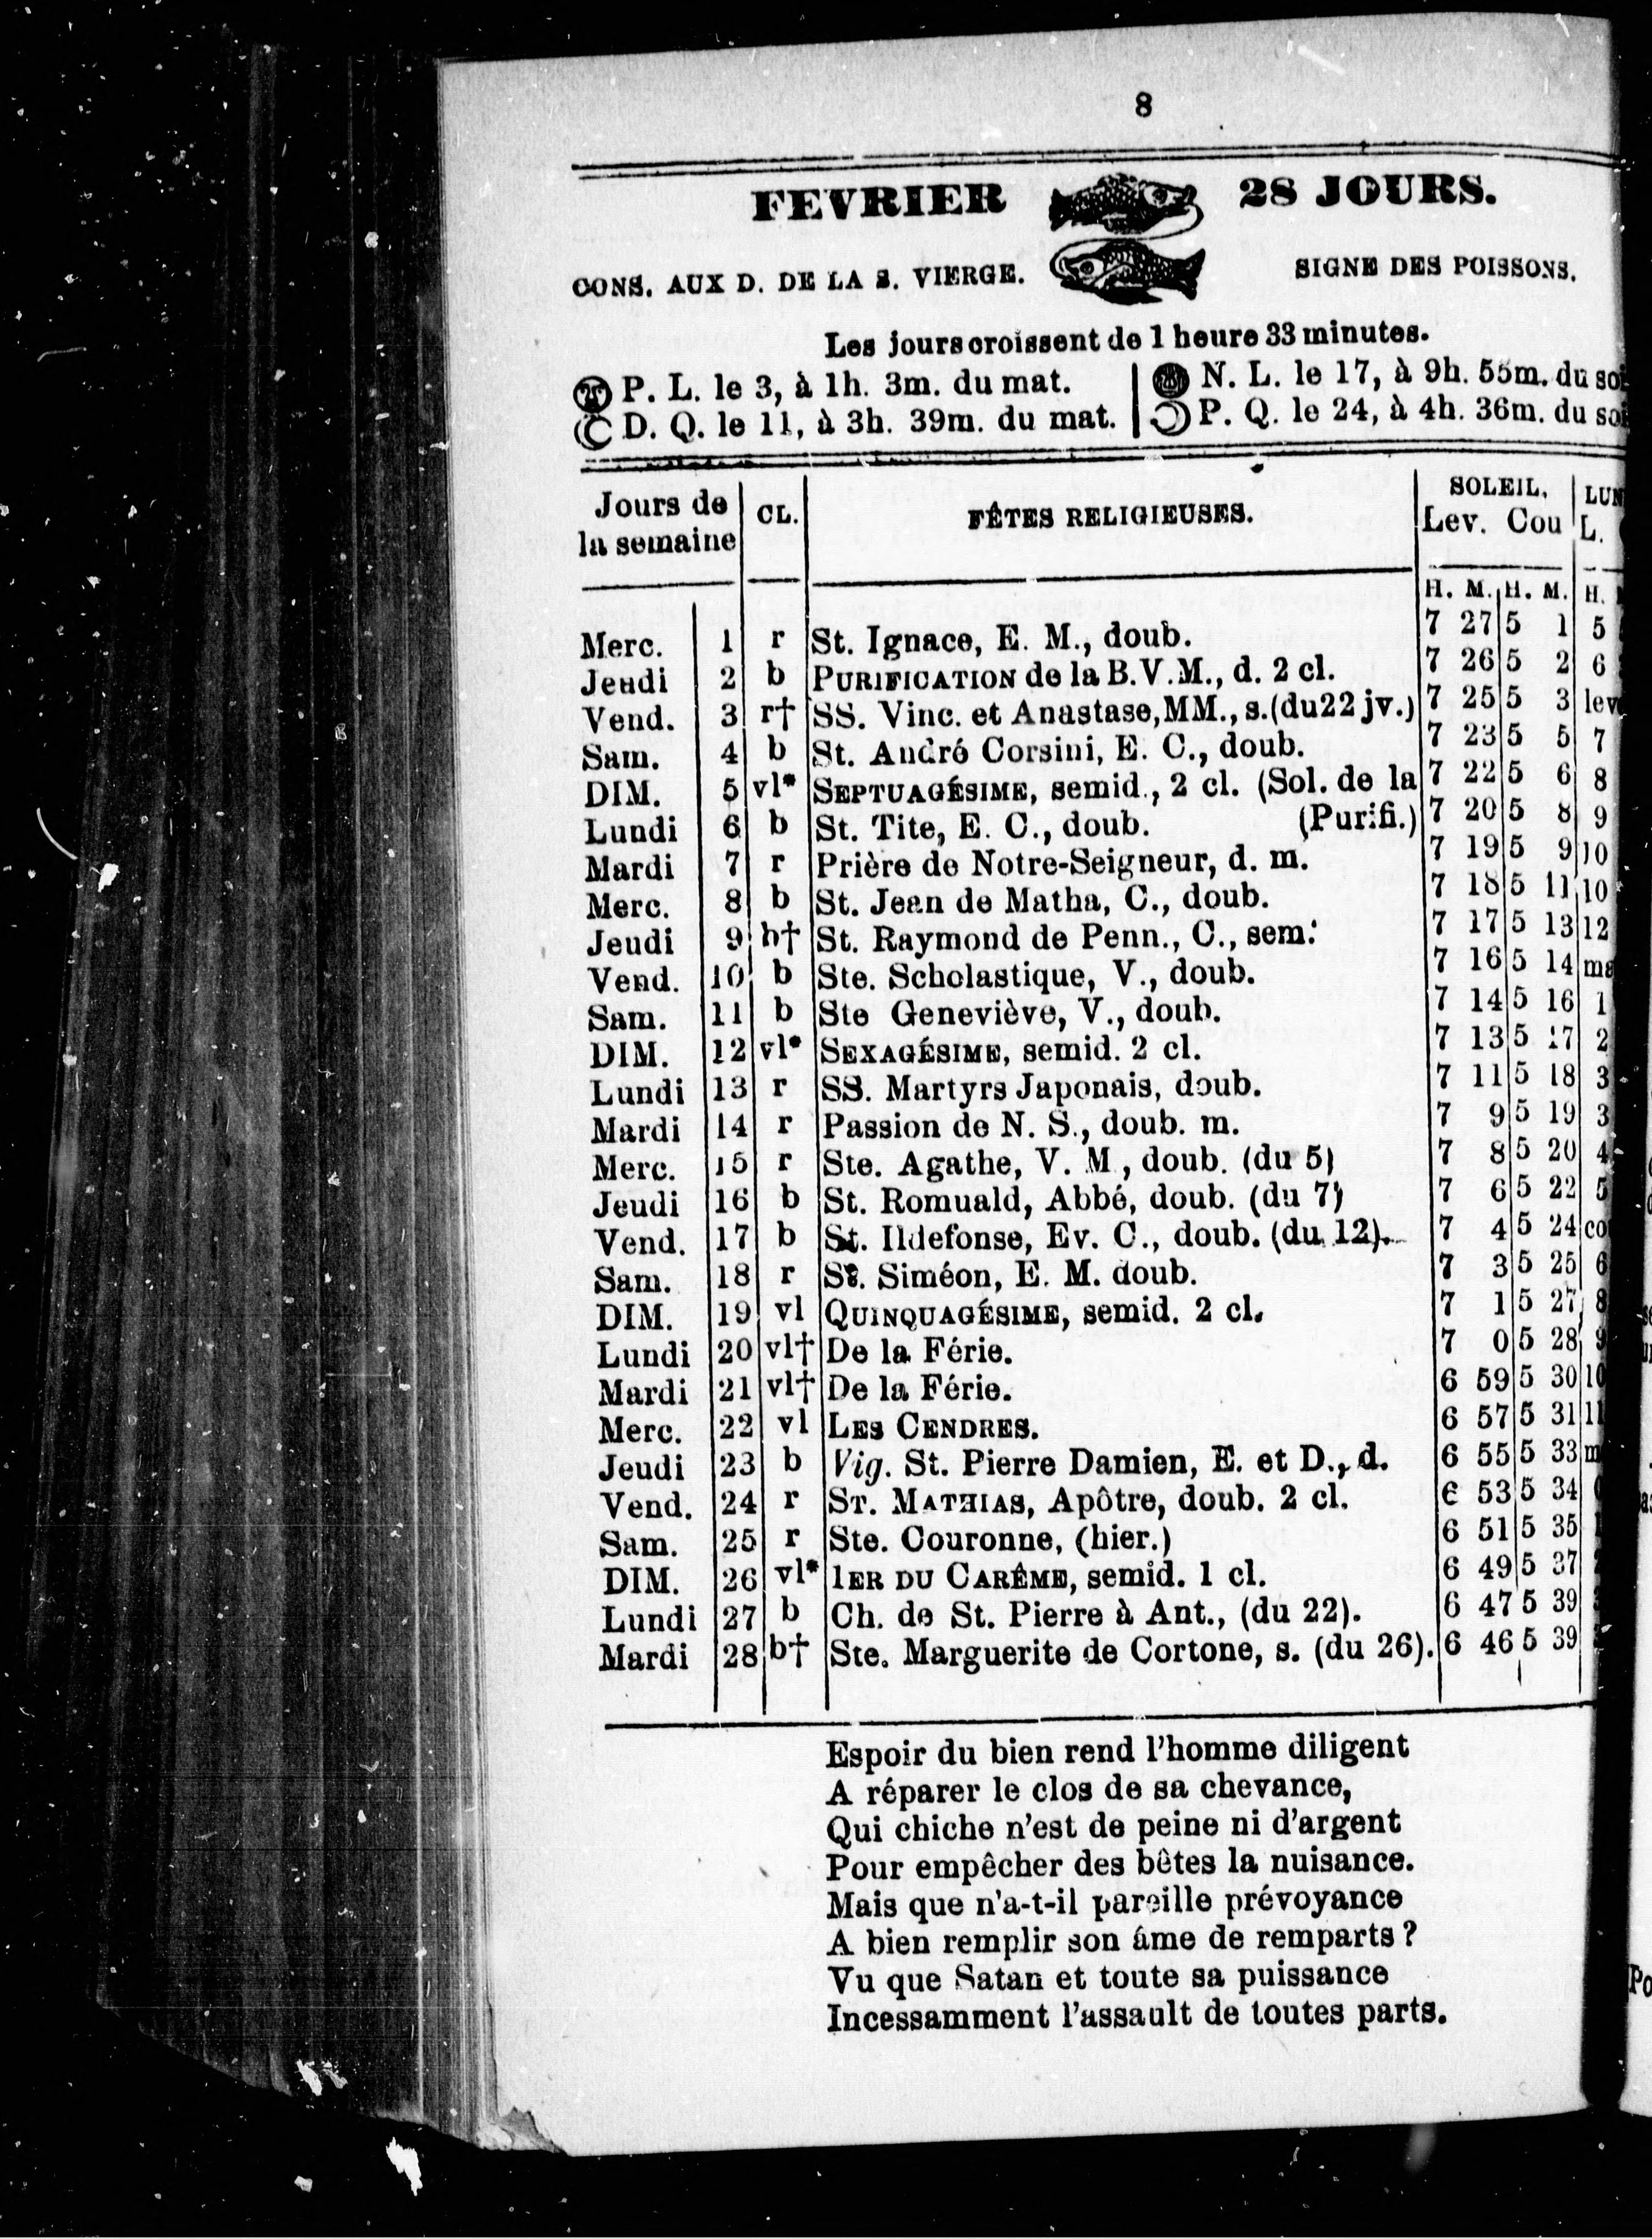 8
FEVRIER 28 JOURS.
CONS. AUX D. DE LA S. VIERGE. SIGNE DES POISSONS.
Les jours croissent de 1 heure 33 minutes.
P. L. le 3, à 1h. 3m. du mat. N. L. le 17, à 9h. 55m. du
D. Q. le 11, à 3h. 39m. du mat. P. Q. le 24, à 4h. 36m. du
Jours de la semaine CL. FÊTES RELIGIEUSES. SOLEIL. Lev. Cou L.
H. M. H. M. H.
Merc. 1 r St. Ignace, E. M., doub. 7 27 5 1 5
Jeudi 2 b PURIFICATION de la B.V.M., d. 2 cl. 7 26 5 2 6
Vend. 3 r† SS. Vinc. et Anastase, MM., s. (du 22 jv.) 7 25 5 3 lev
Sam. 4 b St. André Corsini, E. C., doub. 7 23 5 5 7
DIM. 5 vl* SEPTUAGÉSIME, semid., 2 cl. (Sol. de la 7 22 5 6 8
Lundi 6 b St. Tite, E. C., doub. (Purifi.) 7 20 5 8 9
Mardi 7 r Prière de Notre-Seigneur, d. m. 7 19 5 9 10
Merc. 8 b St. Jean de Matha, C., doub. 7 18 5 11 10
Jeudi 9 b† St. Raymond de Penn., C., sem. 7 17 5 13 12
Vend. 10 b Ste. Scholastique, V., doub. 7 16 5 14 ma
Sam. 11 b Ste Geneviève, V., doub. 7 14 5 16 1
DIM. 12 vl* SEXAGÉSIME, semid. 2 cl. 7 13 5 17 2
Lundi 13 r SS. Martyrs Japonais, doub. 7 11 5 18 3
Mardi 14 r Passion de N. S., doub. m. 7 9 5 19 3
Merc. 15 r Ste. Agathe, V. M., doub. (du 5) 7 8 5 20 4
Jeudi 16 b St. Romuald, Abbé, doub. (du 7) 7 6 5 22 5
Vend. 17 b St. Ildefonse, Ev. C., doub. (du 12). 7 4 5 24 co
Sam. 18 r St. Siméon, E. M. doub. 7 3 5 25 6
DIM. 19 vl QUINQUAGÉSIME, semid. 2 cl. 7 1 5 27 8
Lundi 20 vl† De la Férie. 7 0 5 28 9
Mardi 21 vl† De la Férie. 6 59 5 30 10
Merc. 22 vl LES CENDRES. 6 57 5 31 11
Jeudi 23 b Vig. St. Pierre Damien, E. et D., d. 6 55 5 33 m
Vend. 24 r ST. MATHIAS, Apôtre, doub. 2 cl. 6 53 5 34
Sam. 25 r Ste. Couronne, (hier.) 6 51 5 35
DIM. 26 vl* 1ER DU CARÊME, semid. 1 cl. 6 49 5 37
Lundi 27 b Ch. de St. Pierre à Ant., (du 22). 6 47 5 39
Mardi 28 b† Ste. Marguerite de Cortone, s. (du 26). 6 46 5 39
Espoir du bien rend l'homme diligent
A réparer le clos de sa chevance,
Qui chiche n'est de peine ni d'argent
Pour empêcher des bêtes la nuisance.
Mais que n'a-t-il pareille prévoyance
A bien remplir son âme de remparts ?
Vu que Satan et toute sa puissance
Incessamment l'assault de toutes parts.